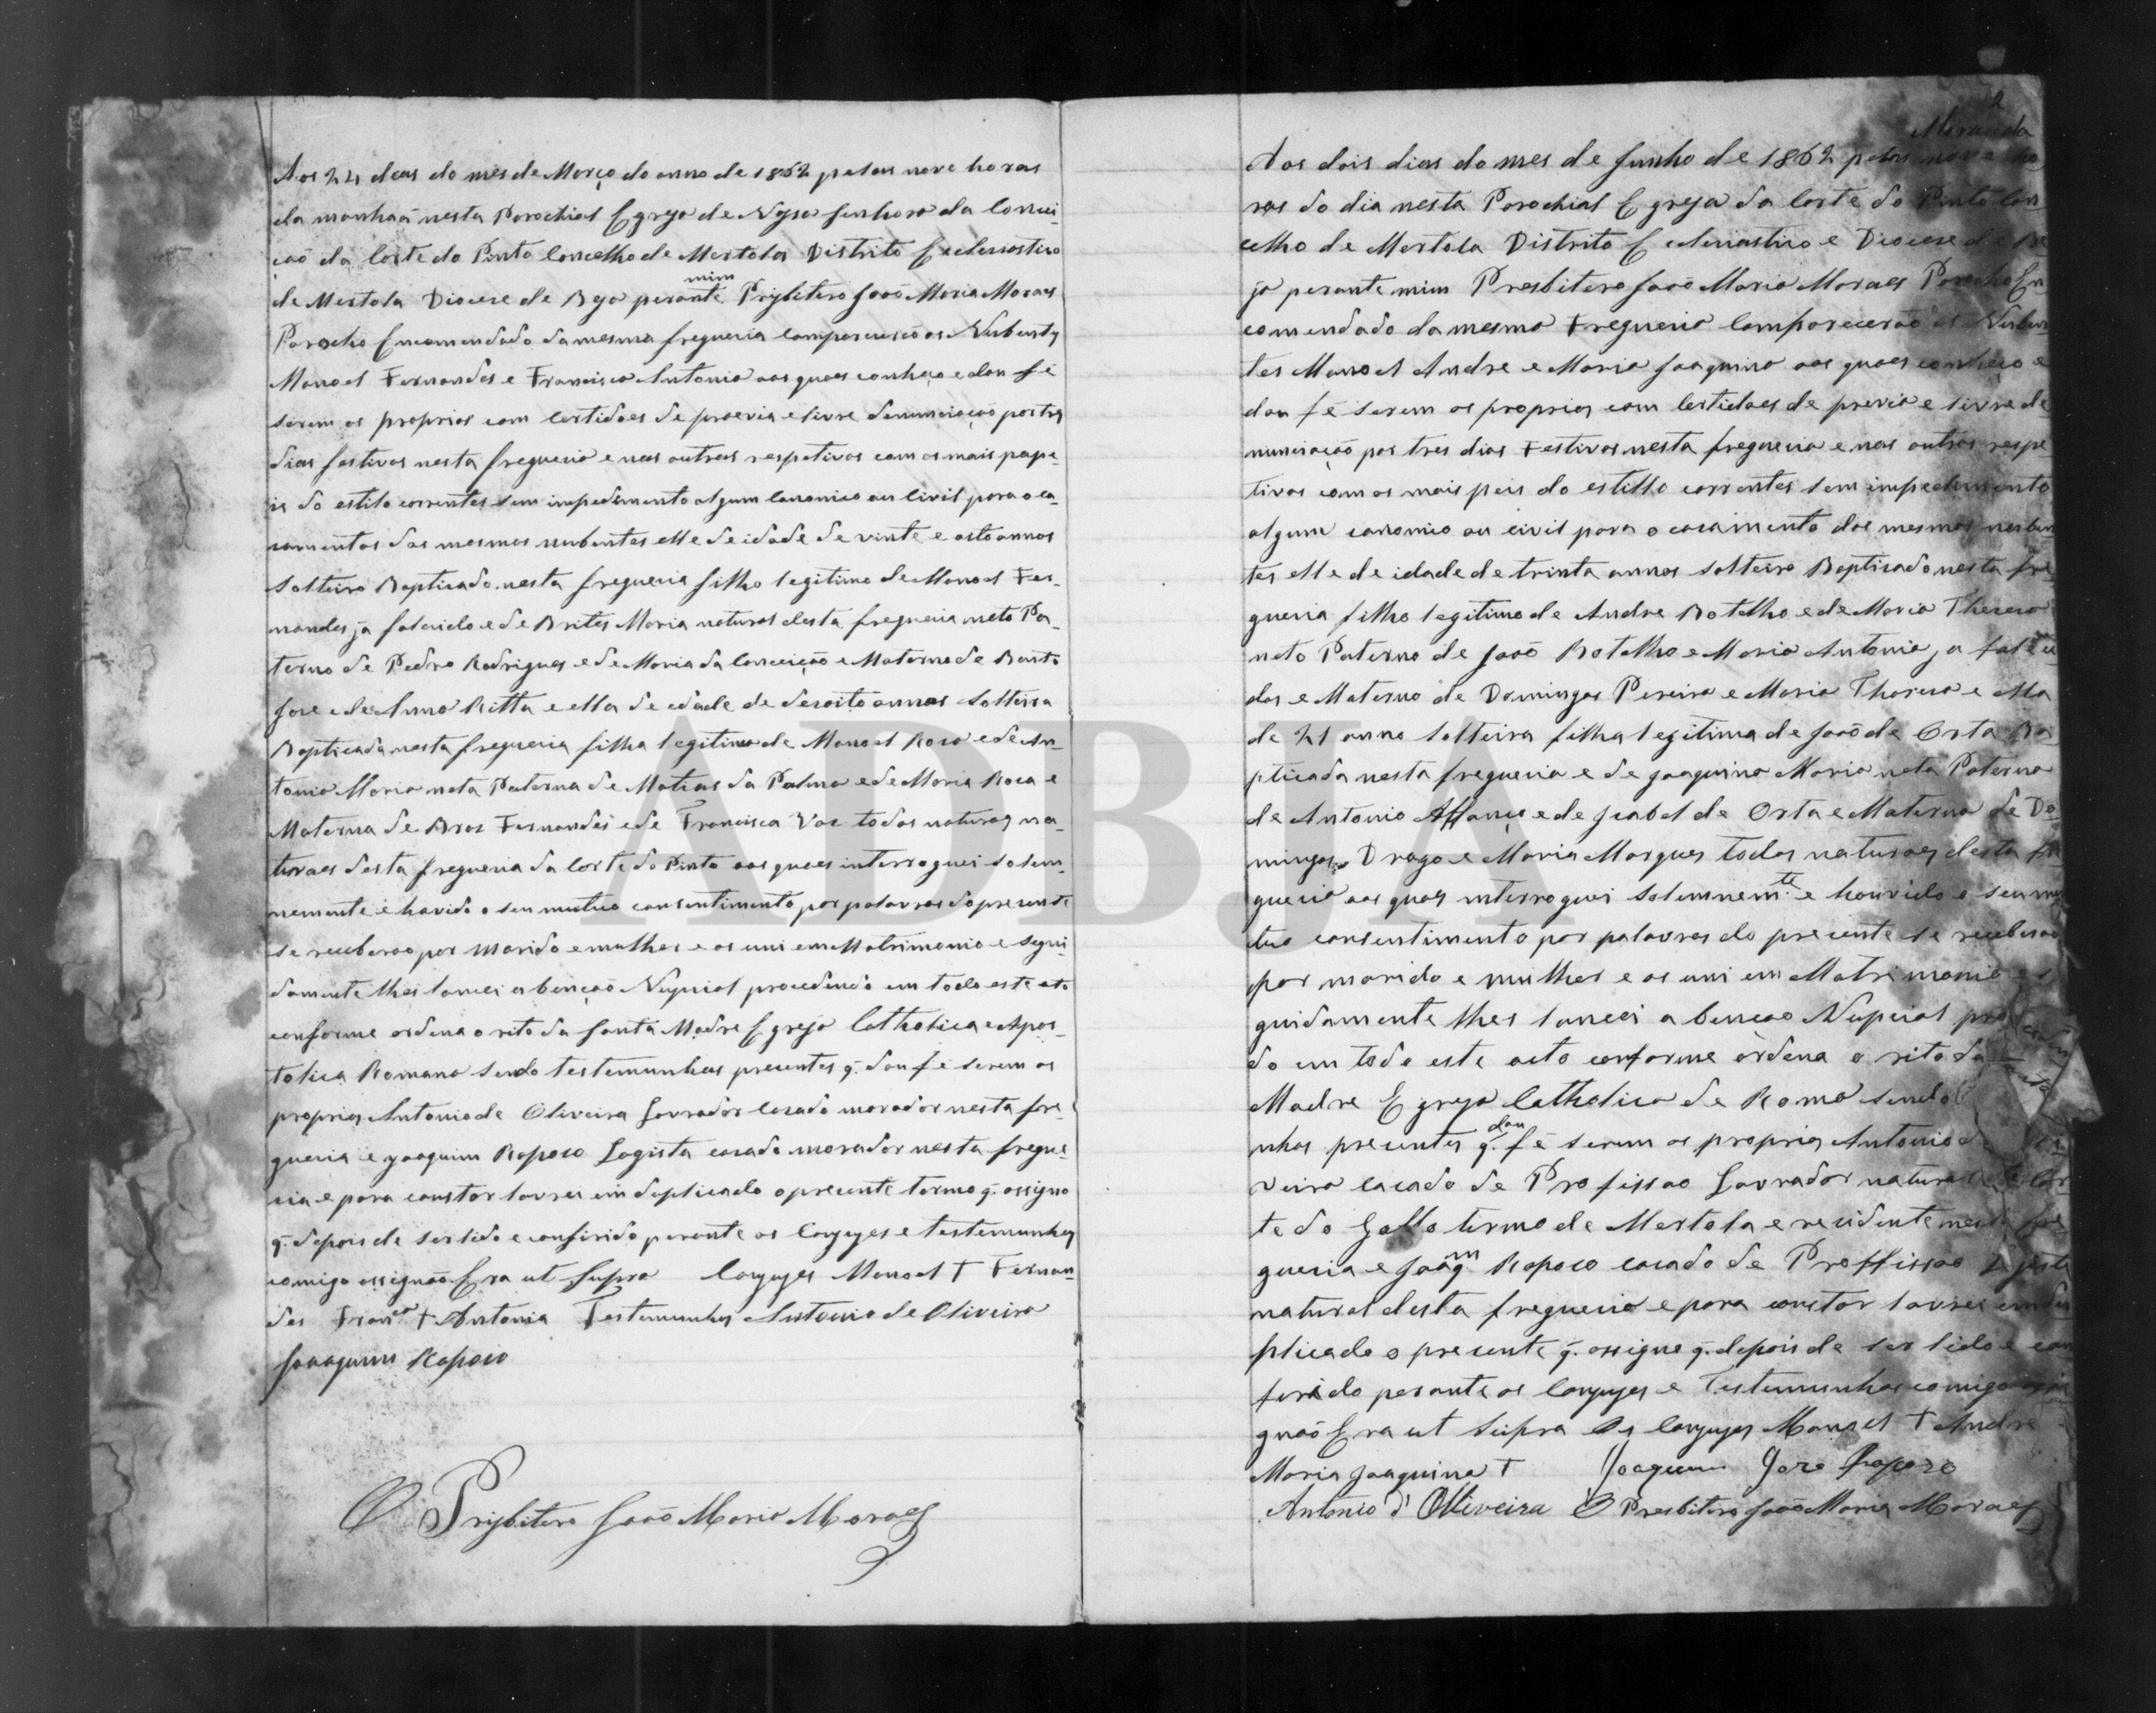 Aos 24 deas do mes de Março do anno de 1862 pelas nove horas
da manhaã nesta Parochial Egreja de Nossa Senhora da Concei-
çaõ da Corte do Pinto Concelho de Mertola Distrito Eclesiastico
de Mertola Diocese de Beja perante mim Prisbitero Joaõ Maria Moraes
Parocho Encomendado da mesma freguesia comparecerão os Nubentes
Manoel Fernandes e Francisca Antonia aos quaes conheço e dou fé
serem os proprios com certidoes de praevia e livre denunciação por tres
dias festivos nesta freguesia e nas outras respetivas com os mais pape-
is do estilo correntes sem impedimento algum canonico ou civil para o ca-
samentos dos mesmos nubentes elle de idade de vinte e oito annos
solteiro Baptizado nesta freguesia filho legitimo de Manoel Fer-
nandes ja falecido e de Brites Maria natural desta freguesia neto Pa-
terno de Pedro Rodrigues e de Maria da Conceição e Materno de Bento
Jose e de Anna Ritta e ella de edade de desoito annos solteira
Bapticada nesta freguesia filha legitima de Manoel Rosa e de An-
tonia Maria neta Paterna de Matias da Palma e de Maria Rosa e
Materna de Bras Fernandes e de Francisca Vaz todos naturaes na-
turaes desta freguesia da Corte do Pinto aos quaes interroguei solem-
nemente e havido o seu mutuo consentimento por palavras do presente
se receberão por marido e mulher e os uni em Matrimonio e segui-
damente lhes lancei a bençaõ Nupcial procedendo em todo este ato
conforme ordena o rito da Santa Madre Egreja Catholica e Apos-
tolica Romana sendo testemunhas presentes q. dou fé serem os
proprios Antonio de Oliveira Lavrador casado morador nesta fre-
guesia e Joaquim Raposo Logista casado morador nesta fregue-
sia e para constar lavrei em duplicado o presente termo q. assigno
q. depois de ser lido e conferido perante os Conjuges e testemunhas
comigo assignaõ Era ut supra Conjuges Manoel † Fernan-
des Franca † Antonia Testemunhas Antonio de Oliveira
Joaaquim Raposo
O Prisbitero Joaõ Maria Moraes
2
Miranda
Aos dois dias do mes de Junho de 1862 pelas nove ho
ras do dia nesta Parochial Egreja da Corte do Pinto Con
celho de Mertola Distrito Eclesiastico e Diocese de Be
ja perante mim Presbitero Joaõ Maria Moraes Parocho En
comendado da mesma Freguesia comparecerão os Nuben
tes Manoel Andre e Maria Joaquina aos quaes conheço e
dou fé serem os proprios com certidoes de previa e livre de
nunciação por tres dias Festivos nesta freguesia e nas outras respe
tivas com os mais peis do estillo correntes sem impedimento
algum canonico ou civil para o casamento dos mesmos nuben
tes elle de idade de trinta annos solteiro Baptisado nesta fre
guesia filho legitimo de Andre Botelho e de Maria Theresa
neto Paterno de Joaõ Botelho e Maria Antonia ja faleci
dos e Materno de Domingos Pereira e Maria Theresa e ella
de 21 anno solteira filha legitima de Joaõ de Orta Ba
pticada nesta freguesia e de Joaquina Maria neta Paterna
de Antonio Affonço e de Isabel de Orta e Materna de Do
mingos Drago e Maria Marques todos naturaes desta fre
guesia aos quaes interroguei solemnemte. e houvido o seu mu
tuo consentimento por palavras do presente se receberaõ
por marido e mulher e os uni em Matrimonio e se
guidamente lhes lancei a bençaõ Nupcial pro
do em todo este acto conforme ordena o rito da
Madre Egreja Catholica de Roma sendo
nhas presentes q. dou fé serem os proprios Antonio d
veira casado de Profissao Lavrador natural de Cor
te do Gallo termo de Mertola e residente nesta fre
guesia e Joaqm Raposo casado de Proffissao Logista
natural desta freguesia e para constar lavrei em du
plicado o presente q. assigno q. depois de ser lido e con
ferido perante os Conjuges e Testemunhas comigo assi
gnaõ Era ut Supra Os Conjuges Manoel † Andre
Maria Joaquina † Joaquim Joze Raposo
Antonio d' Olliveira O Presbitero Joaõ Maria Moraes
ADBJA